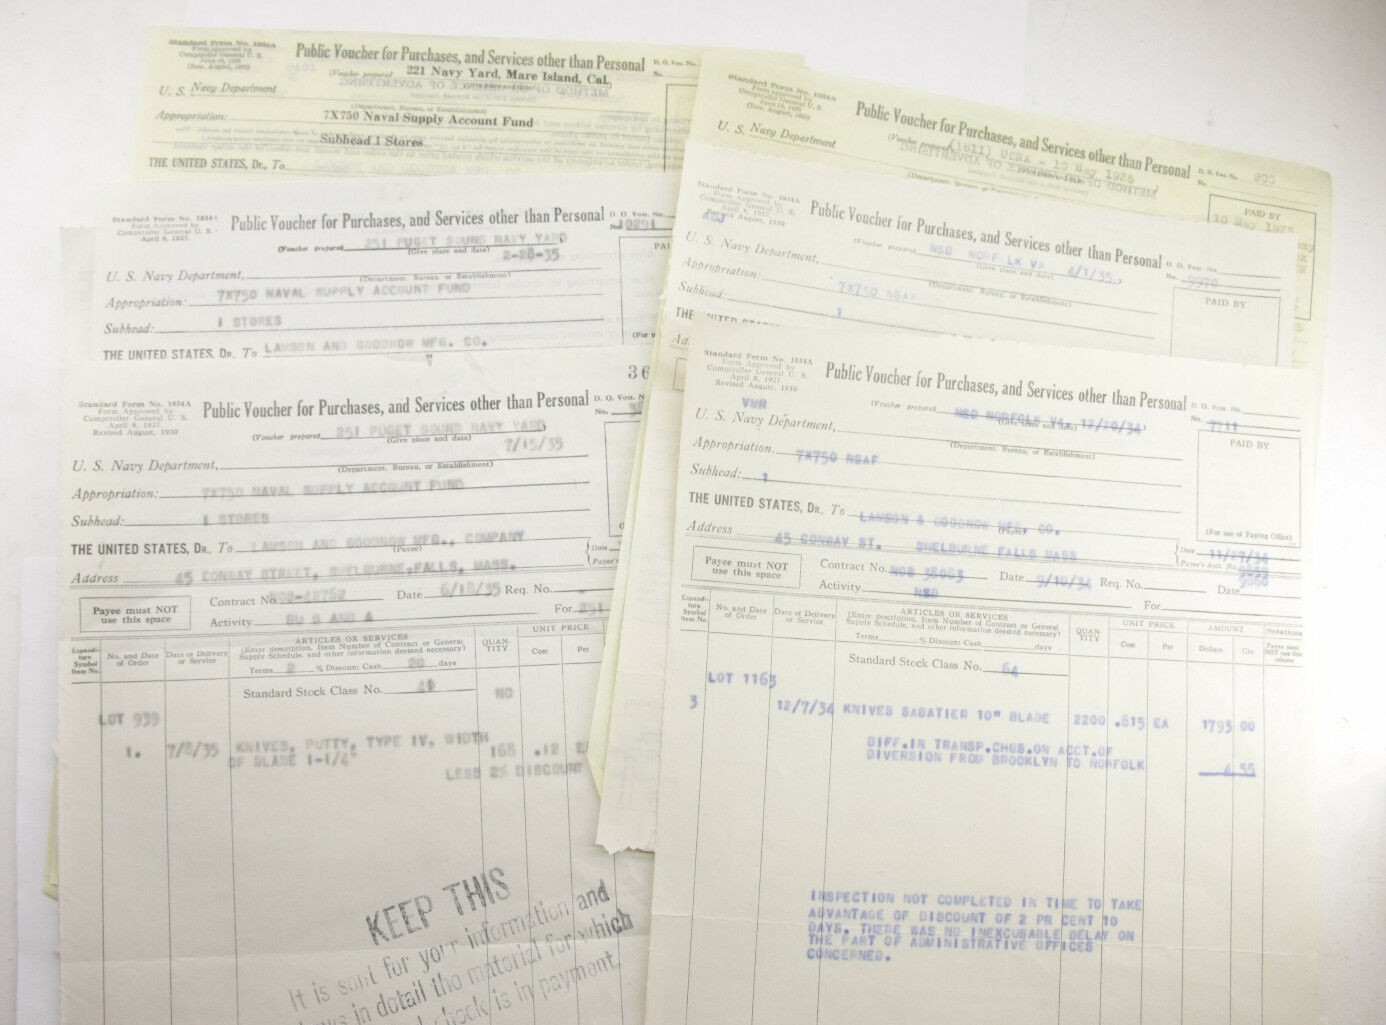 Standard Form No. 1034A
Form approved by
Comptroller General U. S.
Public Voucher for Purchases, and Services other than Personal
D. O. Vou. No.
No.
(Voucher prepared
221 Navy Yard, Mare Island, Cal.
U. S. Navy Department
(Department, Bureau, or Establishment)
Appropriation:
7X750 Naval Supply Account Fund
Subhead 1 Stores
THE UNITED STATES, Dr., To
Standard Form No. 1034A
Form approved by
Comptroller General U. S.
Public Voucher for Purchases, and Services other than Personal
D. O. Vou. No.
No.
(Voucher prepared
10 May 1925
U. S. Navy Department
PAID BY
10 May 1925
Standard Form No. 1034A
Form Approved by
Comptroller General U. S.
April 8, 1927.
Public Voucher for Purchases, and Services other than Personal
D. O. Vou. No.
(Voucher prepared 251 PUGET SOUND NAVY YARD
(Give place and date) 2-28-35
U. S. Navy Department,
(Department, Bureau, or Establishment)
Appropriation: 7X750 NAVAL SUPPLY ACCOUNT FUND
Subhead: 1 STORES
THE UNITED STATES, DR., To LAMSON AND GOODNOW MFG. CO.
Standard Form No. 1034A
Form Approved by
Comptroller General U. S.
April 8, 1927.
Revised August, 1930
Public Voucher for Purchases, and Services other than Personal
D. O. Vou. No.
(Voucher prepared NSD NORFOLK VA 4/1/35,
(Give place and date)
No. 9970
U. S. Navy Department,
(Department, Bureau, or Establishment)
PAID BY
Appropriation: 7X750 NSAF
Subhead: 1
Standard Form No. 1034A
Form Approved by
Comptroller General U. S.
April 8, 1927.
Revised August, 1930
Public Voucher for Purchases, and Services other than Personal
D. O. Vou. No.
No.
36
(Voucher prepared 251 PUGET SOUND NAVY YARD
(Give place and date) 7/15/35
U. S. Navy Department,
(Department, Bureau, or Establishment)
Appropriation: 7X750 NAVAL SUPPLY ACCOUNT FUND
Subhead: 1 STORES
THE UNITED STATES, DR., To LAMSON AND GOODNOW MFG., COMPANY
(Payee)
Address 45 CONWAY STREET, SHELBURNE, FALLS, MASS.
Date
Payee must NOT
use this space
Contract No. NOS-42752 Date 6/18/35 Req. No.
Activity SU S AND A For 251
Expendi-
ture
Symbol
Item No.
No. and Date
of Order
Date of Delivery
or Service
ARTICLES OR SERVICES
(Enter description, Item Number of Contract or General
Supply Schedule, and other information deemed necessary)
Terms 2 % Discount Cash 20 days
QUAN-
TITY
UNIT PRICE
Cost Per
Standard Stock Class No. 41
NO
LOT 939
1. 7/8/35 KNIVES, PUTTY, TYPE IV, WIDTH
OF BLADE 1-1/4" 168 .12
LESS 2% DISCOUNT
KEEP THIS
It is sent for your information and
in detail the material for which
check is in payment.
Standard Form No. 1034A
Form Approved by
Comptroller General U. S.
April 8, 1927.
Revised August, 1930
Public Voucher for Purchases, and Services other than Personal
D. O. Vou. No.
No. 7711
VMR
(Voucher prepared NSD NORFOLK VA 12/20/34,
(Give place and date)
U. S. Navy Department,
(Department, Bureau, or Establishment)
PAID BY
(For use of Paying Office)
Appropriation: 7X750 NSAF
Subhead: 1
THE UNITED STATES, DR., To LAMSON & GOODNOW MFG, CO.
(Payee)
Address 45 CONWAY ST. SHELBURNE FALLS MASS
Date 11/27/34
Payee's Acct. No.
Payee must NOT
use this space
Contract No. NOS 38063 Date 9/10/34 Req. No. Date
Activity NSD For
Expendi-
ture
Symbol
Item No.
No. and Date
of Order
Date of Delivery
or Service
ARTICLES OR SERVICES
(Enter description, Item Number of Contract or General
Supply Schedule, and other information deemed necessary)
Terms % Discount Cash days
QUAN-
TITY
UNIT PRICE
Cost Per
AMOUNT
Dollars Cts.
Notations
Payee must
NOT use this
column
Standard Stock Class No. 64
LOT 1163
3 12/7/34 KNIVES SABATIER 10" BLADE 2200 .815 EA 1793 00
DIFF.IN TRANSP.CHGS.ON ACCT.OF
DIVERSION FROM BROOKLYN TO NORFOLK 4 55
INSPECTION NOT COMPLETED IN TIME TO TAKE
ADVANTAGE OF DISCOUNT OF 2 PR CENT 10
DAYS. THERE WAS NO INEXCUSABLE DELAY ON
THE PART OF ADMINISTRATIVE OFFICES
CONCERNED.